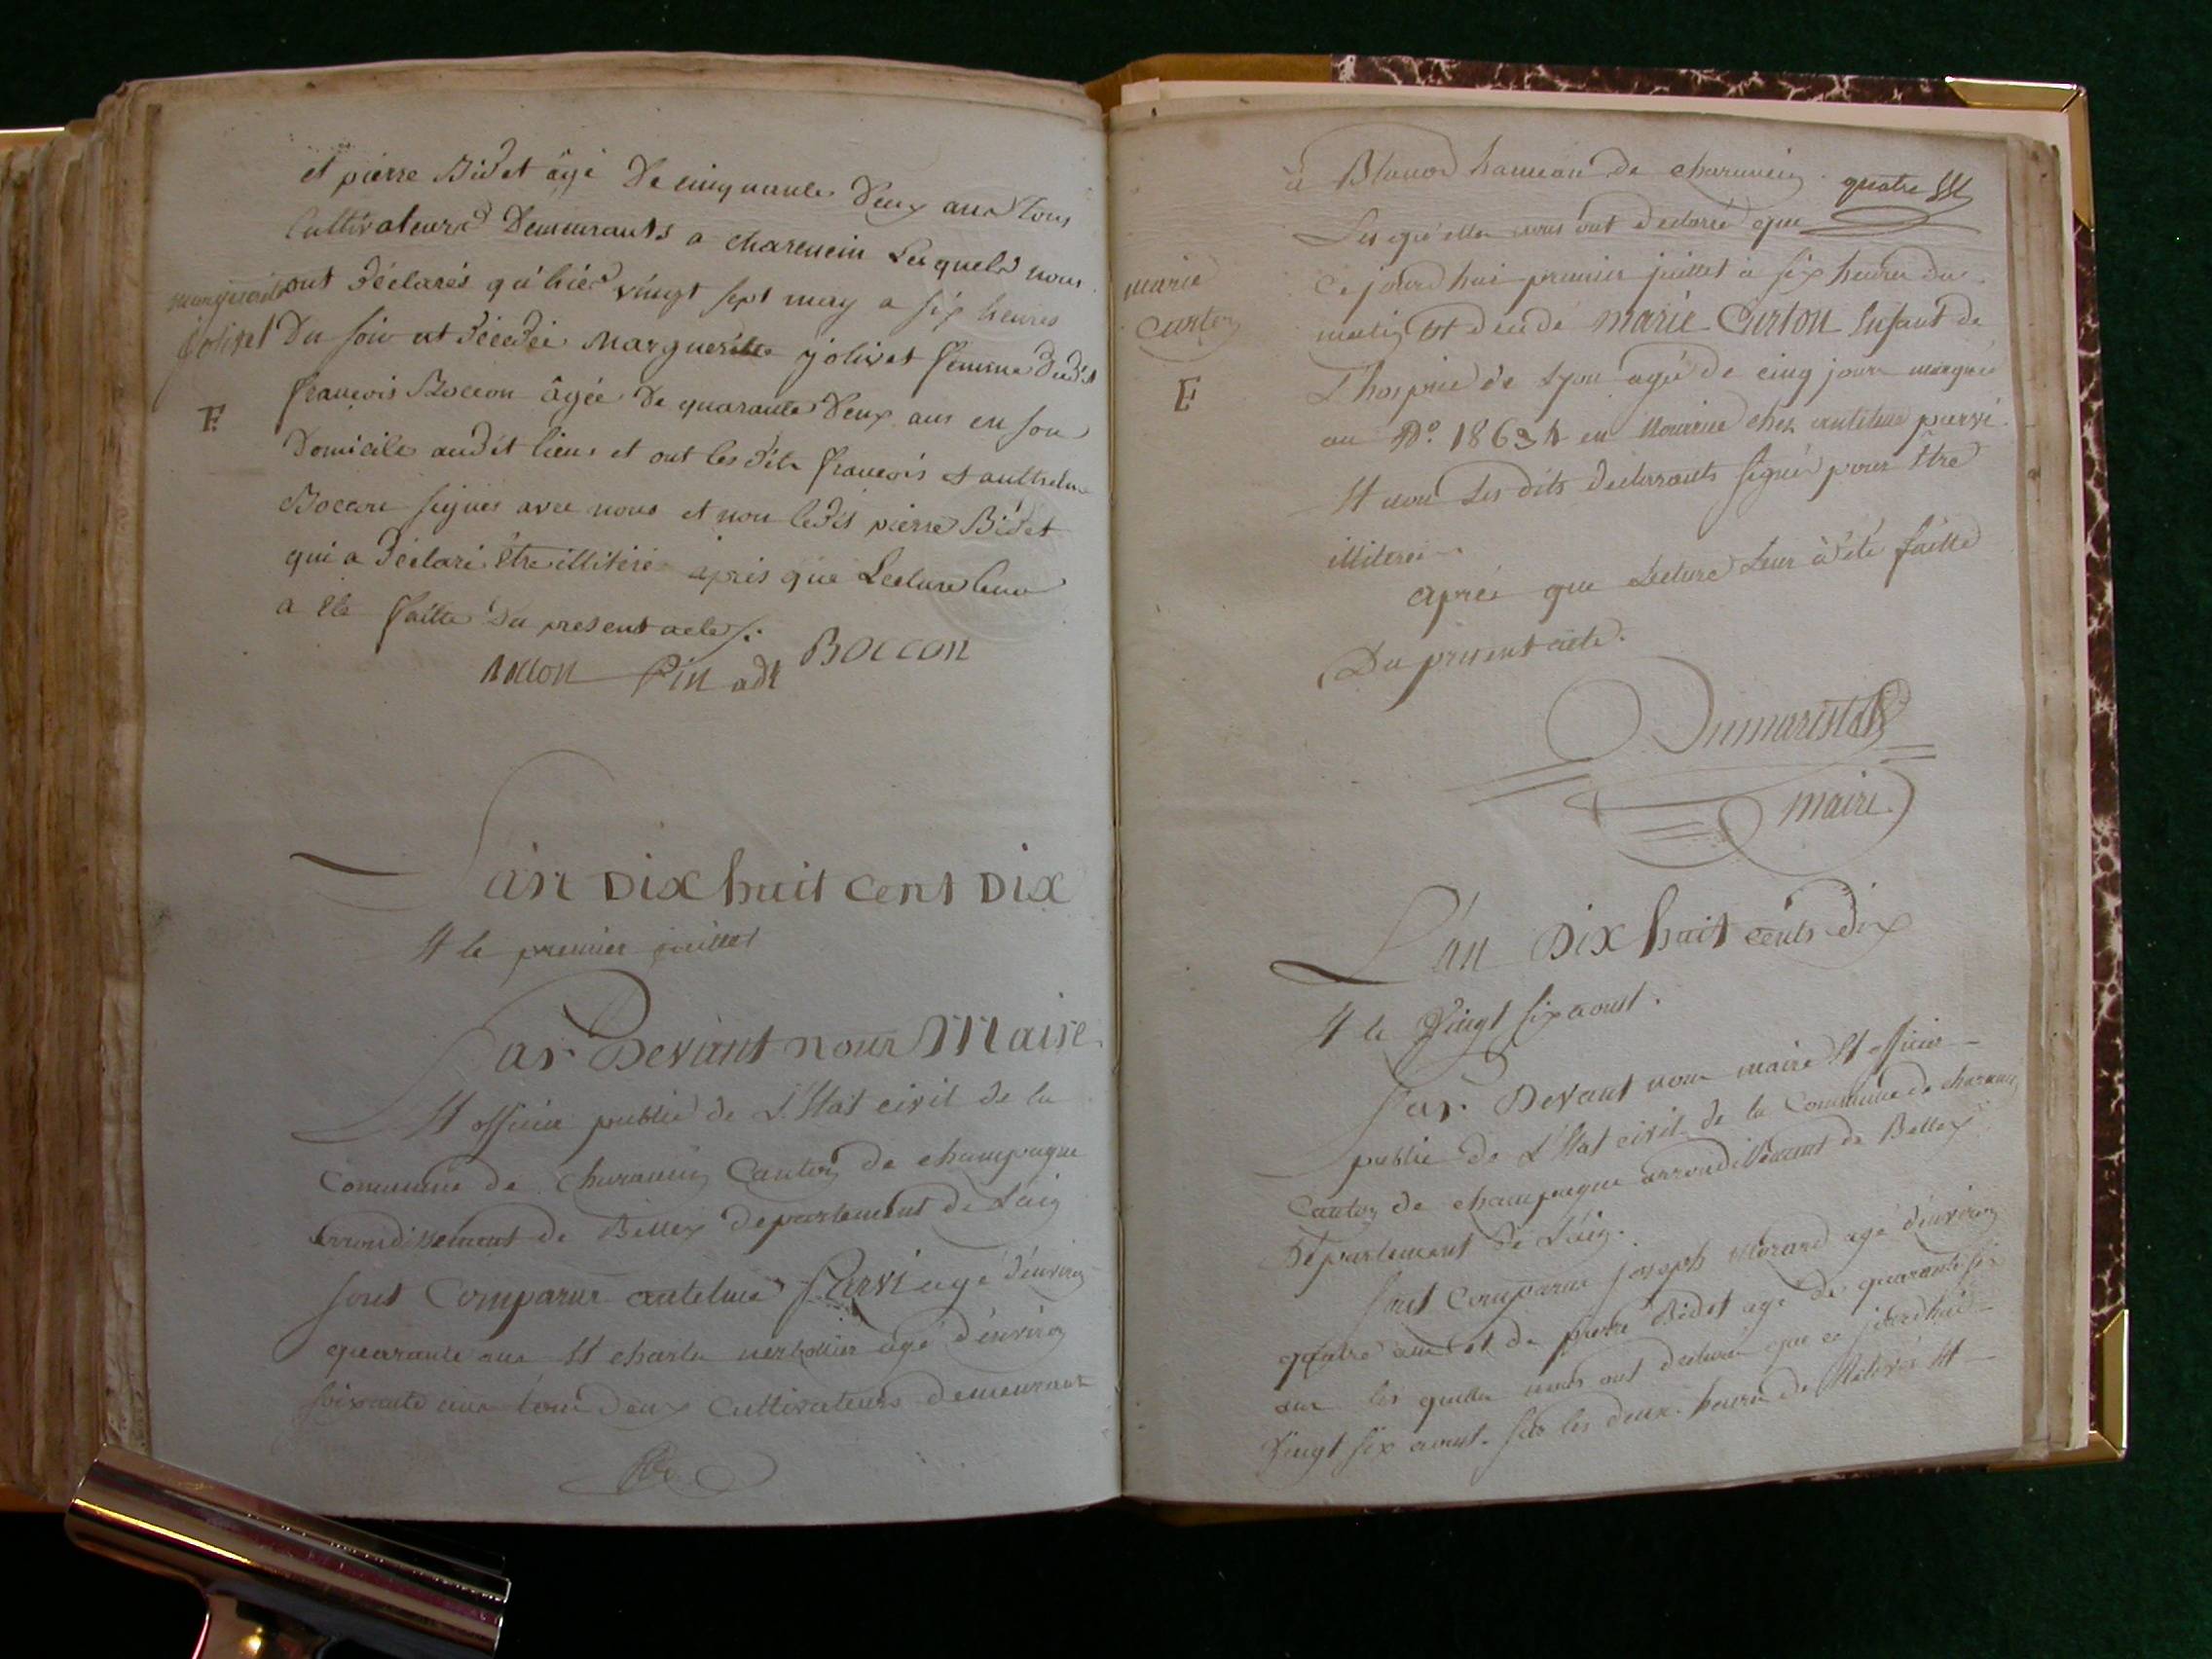 et pierre Bidet âgé De cinquante Deux ans tous
Cultivateurs Demeurants a charencin Lesquels nous
ont Déclarés qu'hier vingt sept may a six heures
Du soir est Décedée Margueritte jolivet femme dudit
françois Boccon âgée De quarante Deux ans en son
Domicile audit lieu et ont lesdits françois et anthelme
Boccon signés avec nous et non ledit pierre Bidet
qui a Déclaré être illitéré après que Lecture leur
a été faitte Du present acte
jolivet
F.
Boccon Pin adt BOCCON
L'an Dix huit cent Dix
Et le premier juillet
Par Devant nous Maire
Et officier public de L'Etat civil de la
Commune de Charancin Canton de champagne
arrondissement de Belley departement de L'ain
sont Comparus antelme Parvi agé d'environ
quarante ans Et charle agé d'environ
soixante ans tous deux Cultivateurs demeurant
à hameau de charancin quatre
Les quelles nous ont declaré que
Ce jourd'hui premier juillet à six heures du
matin Est decedé marie Curton Enfant de
L'hospice de Lyon agée de cinq jours marquée
au N°. 18634 en Nourrice chez antelme parvi.
Et non Les dits declarants signé pour Etre
illiteré
après que Lecture Leur a été faitte
Du present acte.
marie
Curton
F
Dumarest
maire
L'an Dix huit cents dix
Et le Vingt six aoust.
Par Devant nous maire Et officier
public de L'Etat civil de la Commune de charancin
Canton de champagne arrondissement de Belley
Département de L'ain.
sont Comparus joseph Morand agé d'environ
quatre ans et de pierre Bidet agé de quarante six
ans les quelles nous ont declaré que ce jourd'huit
Vingt six aoust. sur les deux heures de Et